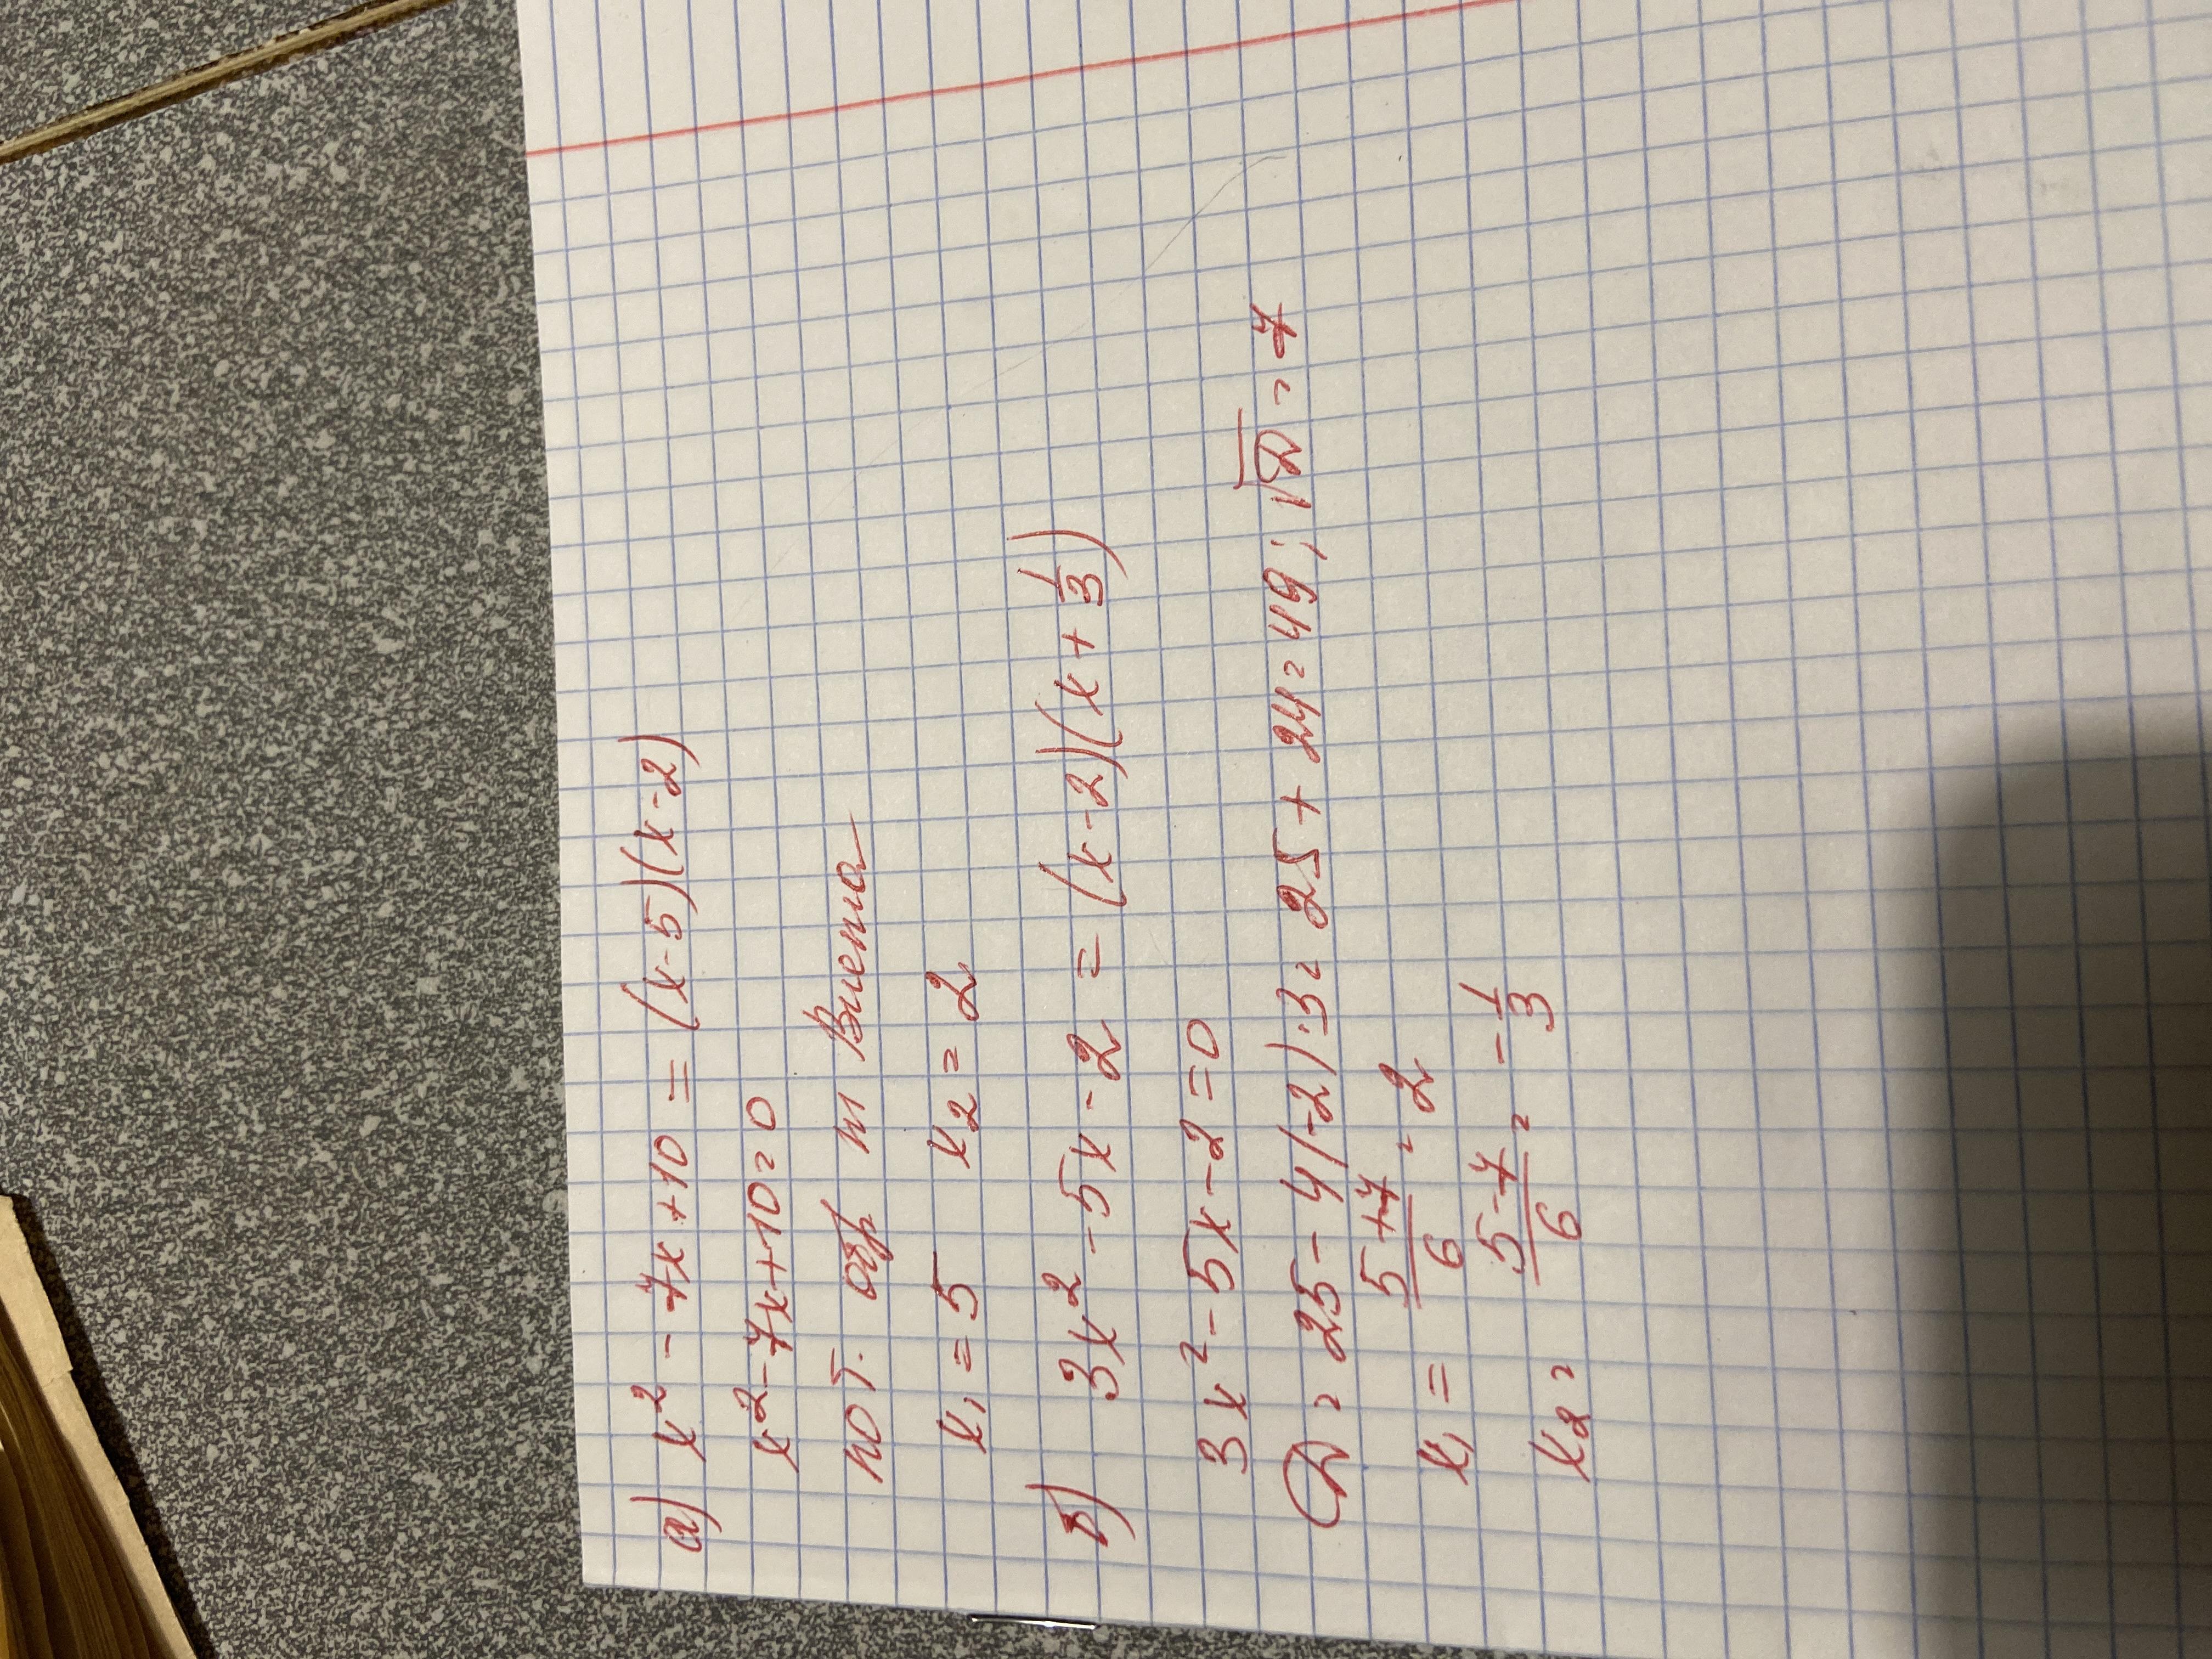 а) x² - 7x + 10 = (x-5)(x-2)
x² - 7x + 10 = 0
по т. обр т Виета
x₁ = 5 x₂ = 2
в) 3x² - 5x - 2 = (x-2)(x+1/3)
3x² - 5x - 2 = 0
D = 25 - 4(-2)·3 = 25 + 24 = 49; √D = 7
x₁ = (5+7)/6 = 2
x₂ = (5-7)/6 = -1/3